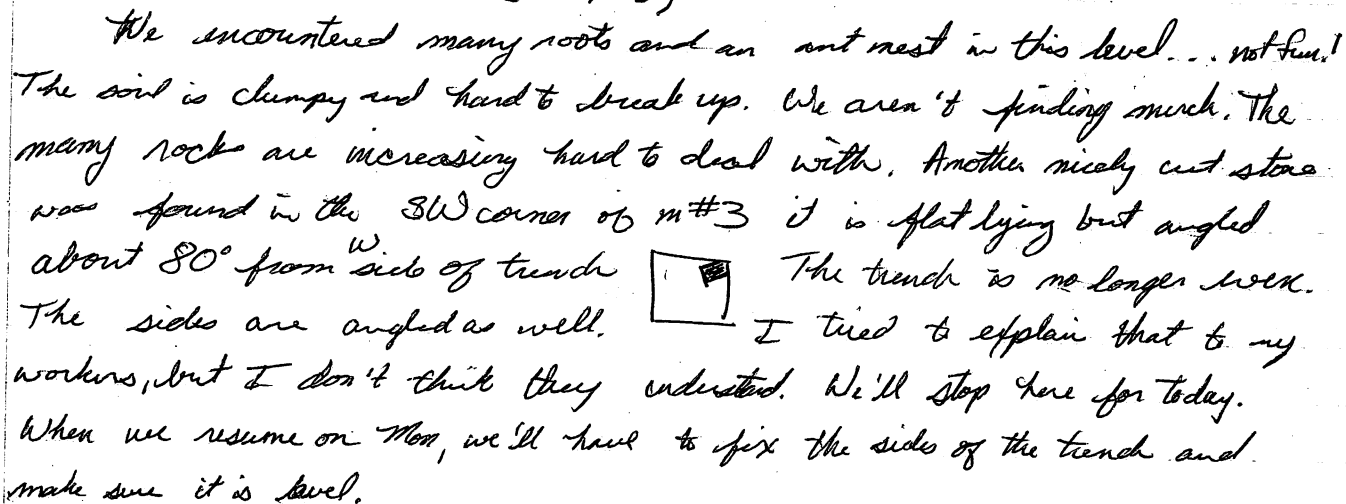 We encountered many roots and an ant nest in this level... not fun!
The soil is clumpy and hard to break up. We aren't finding much. The
many rocks are increasing hard to deal with. Another nicely cut stone
was found in the SW corner of m#3 it is flat lying but angled
about 80° from W side of trench The trench is no longer even.
The sides are angled as well. I tried to explain that to my
workers, but I don't think they understand. We'll stop here for today.
When we resume on Mon, we'll have to fix the sides of the trench and
make sure it is level.